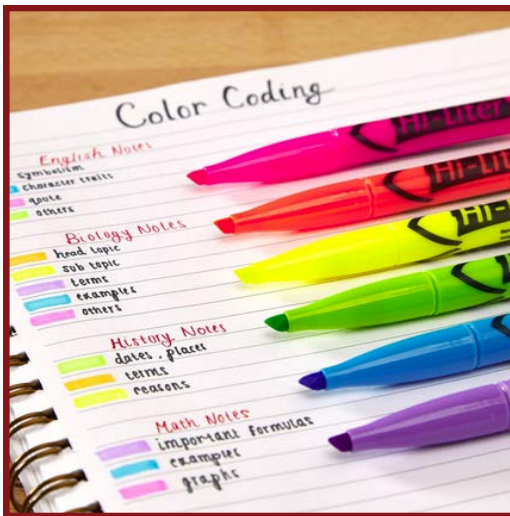 Color Coding
English Notes
symbolism
character traits
qoute
others
Biology Notes
head topic
sub topic
terms
examples
others
History Notes
dates, places
terms
reasons
Math Notes
important formulas
examples
graphs
Hi-Liter
Hi-Lite
Hi-